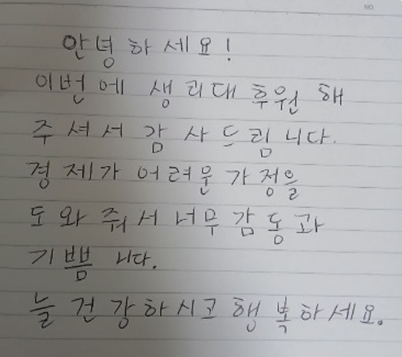 안녕하세요!
이번에 생리대 후원해
주셔서 감사드립니다.
경제가 어려운 가정을
도와줘서 너무 감동과
기쁨니다.
늘 건강하시고 행복하세요.